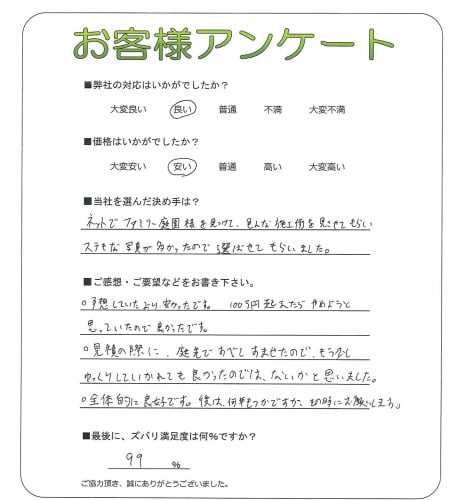 お客様アンケート
■弊社の対応はいかがでしたか？
大変良い 良い 普通 不満 大変不満
■価格はいかがでしたか？
大変安い 安い 普通 高い 大変高い
■当社を選んだ決め手は？
ネットでファミリー庭園様を見つけて、色んな施工例を見させてもらい
ステキな写真が多かったので選ばせてもらいました。
■ご感想・ご要望などをお書き下さい。
○予想していたより安かったです。 100万円超えたらやめようと
思っていたので良かったです。
○見積の際に、庭先ですべてすませたので、もう少し
ゆっくりしていかれても良かったのでは、ないかと思いました。
○全体的に良好です。後は、何年もつかですが、その時にお願いします。
■最後に、ズバリ満足度は何％ですか？
99 ％
ご協力頂き、誠にありがとうございました。